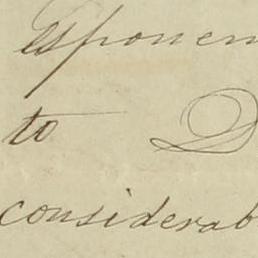 esponen
to D
considerab